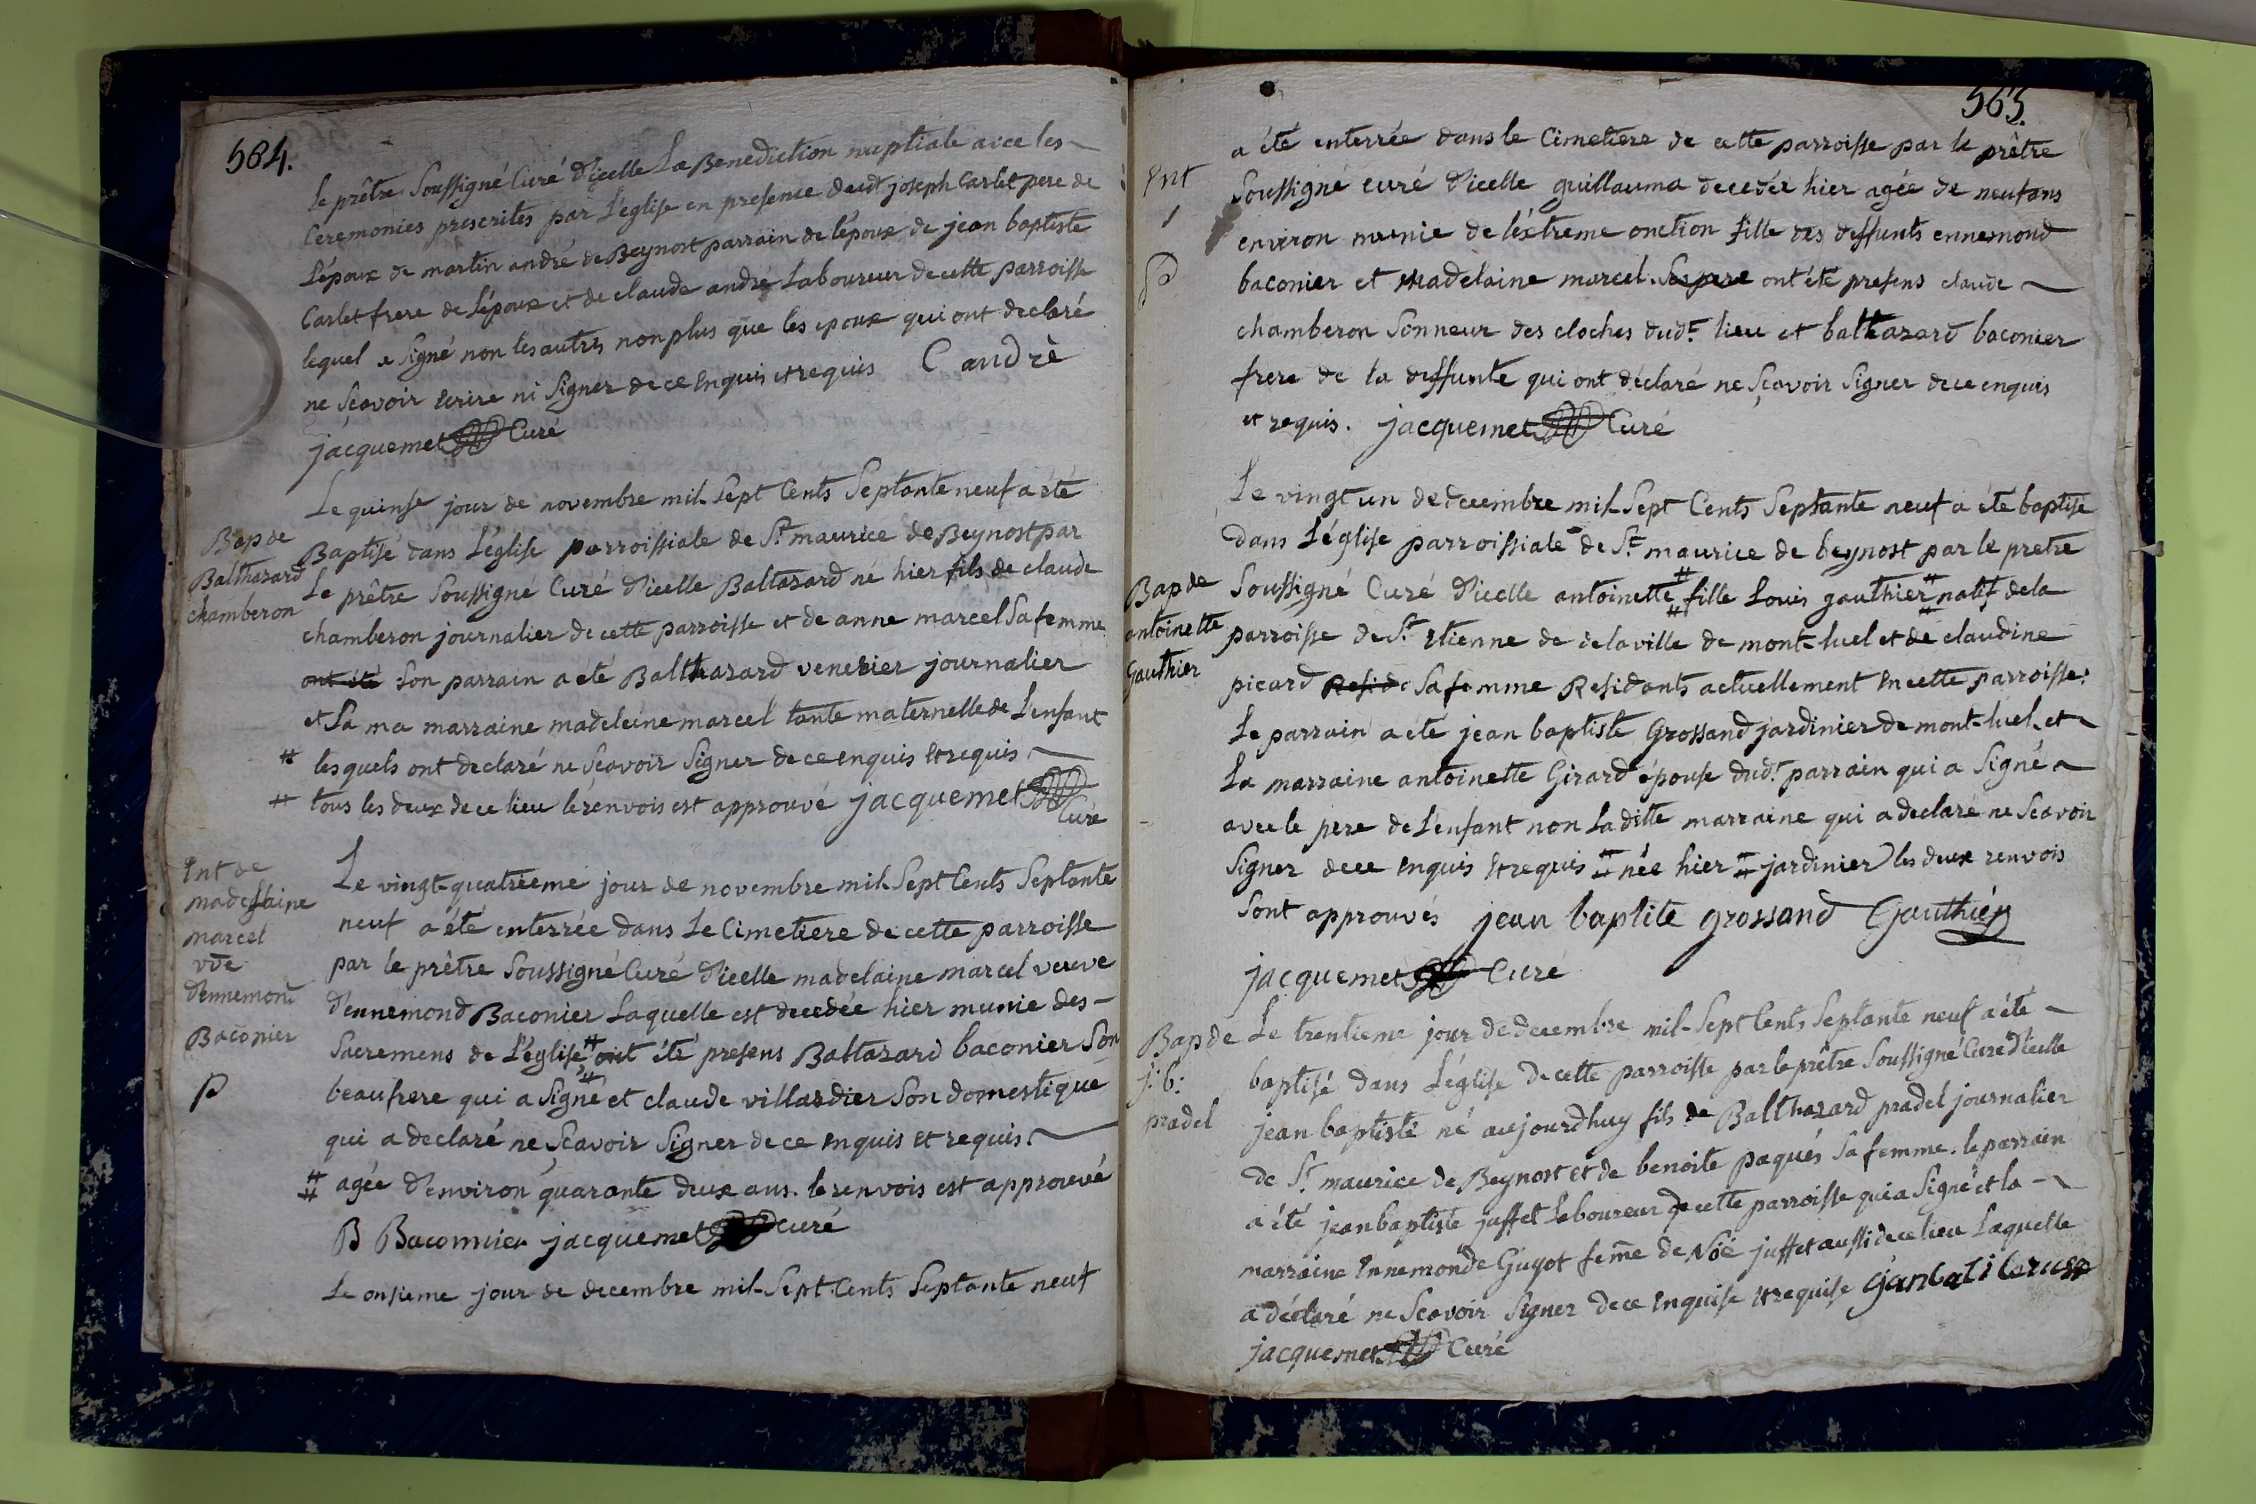 564.
le prêtre Soussigné Curé d'icelle La Benediction nuptiale avec les
Ceremonies prescrites par L'eglise en presence dudt joseph Carlet pere de
L'époux de martin andré de Beynost parrain de l'époux de jean baptiste
Carlet frere de L'époux et de claude andré Laboureur de cette parroisse
lequel a Signé non les autres non plus que les epoux qui ont declaré
ne sçavoir ecrire ni Signer de ce Enquis et requis C andrè
jacquemet Curé
Bap de
Balthazard
chamberon
Le quinse jour de novembre mil Sept Cents Septante neuf a été
Baptisé dans L'église parroissiale de St maurice de Beynost par
Le prêtre Soussigné Curé d'icelle Baltazard né hier fils de claude
chamberon journalier de cette parroisse et de anne marcel Sa femme
ont été Son parrain a été Balthazard venerier journalier
et Sa ma marraine madeleine marcel tante maternelle de L'enfant
# lesquels ont declaré ne Scavoir Signer de ce enquis et requis
# tous les deux de ce lieu le renvois est approuvé jacquemet
Curé
Ent de
madeslaine
marcel
vve
d'ennemond
Baconier
p
Le vingt-quatrieme jour de novembre mil Sept Cents Septante
neuf a été enterrée dans Le Cimetiere de cette parroisse
par le prêtre Soussigné Curé d'icelle madelaine marcel veuve
d'ennemond Baconier Laquelle est decedée hier munie des
Sacremens de L'église # ont été presens Baltazard baconier Son
beaufrere qui a Signé # et claude villardier Son domestique
qui a declaré ne Sçavoir Signer de ce enquis et requis.
# agée d'environ quarante deux ans. le renvois est approuvé
B Baconnier jacquemet curé
Le onsieme jour de decembre mil Sept Cents Septante neuf
565.
Ent
p
a été enterrée dans le Cimetiere de cette parroisse par le prêtre
Soussigné curé d'icelle guillauma decedée hier agée de neuf ans
environ munie de l'éxtreme onction fille des deffunts ennemond
baconier et Madelaine marcel. Son pere ont été presens claude
chamberon Sonneur des cloches dudt lieu et balthazard baconier
frere de la deffunte qui ont déclaré ne Sçavoir Signer de ce enquis
et requis. jacquemet Curé
Bap de
antoinette
Gauthier
Le vingt un de decembre mil Sept Cents Septante neuf a été baptisé
dans L'église parroissiale de St maurice de beynost par le pretre
Soussigné Curé d'icelle antoinette # fille Louis gauthier # natif de la
parroisse de St Etienne de de la ville de mont-luel et de claudine
picard Reside Sa femme Residants actuellement en cette parroisse.
Le parrain a été jean baptiste Grossand jardinier de mont-luel et
La marraine antoinette Girard épouse dudt parrain qui a Signé
avec le pere de L'enfant non La ditte marraine qui a declaré ne Scavoir
Signer de ce enquis et requis # née hier # jardinier) les deux renvois
Sont approuvés jean baptite grossand Gauthier
jacquemet Curé
Bap de
j: b:
pradel
Le trentieme jour de decembre mil Sept Cents Septante neuf a été
baptisé dans L'église de cette parroisse par le prêtre Soussigné Curé d'icelle
jean baptiste né aujourdhuy fils de Balthazard pradel journalier
de St maurice de Beynost et de benoite paqués Sa femme. le parrain
a été jean baptiste juffet Laboureur de cette parroisse qui a Signé et la
marraine Ennemonde Guyot femme de Noë juffet aussi de ce lieu Laquelle
a déclaré ne Scavoir Signer de ce enquise et requise
jacquemet Curé